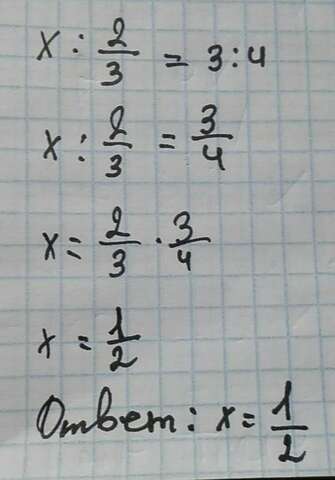 x : 2/3 = 3:4
x : 2/3 = 3/4
x = 2/3 · 3/4
x = 1/2
Ответ: x = 1/2